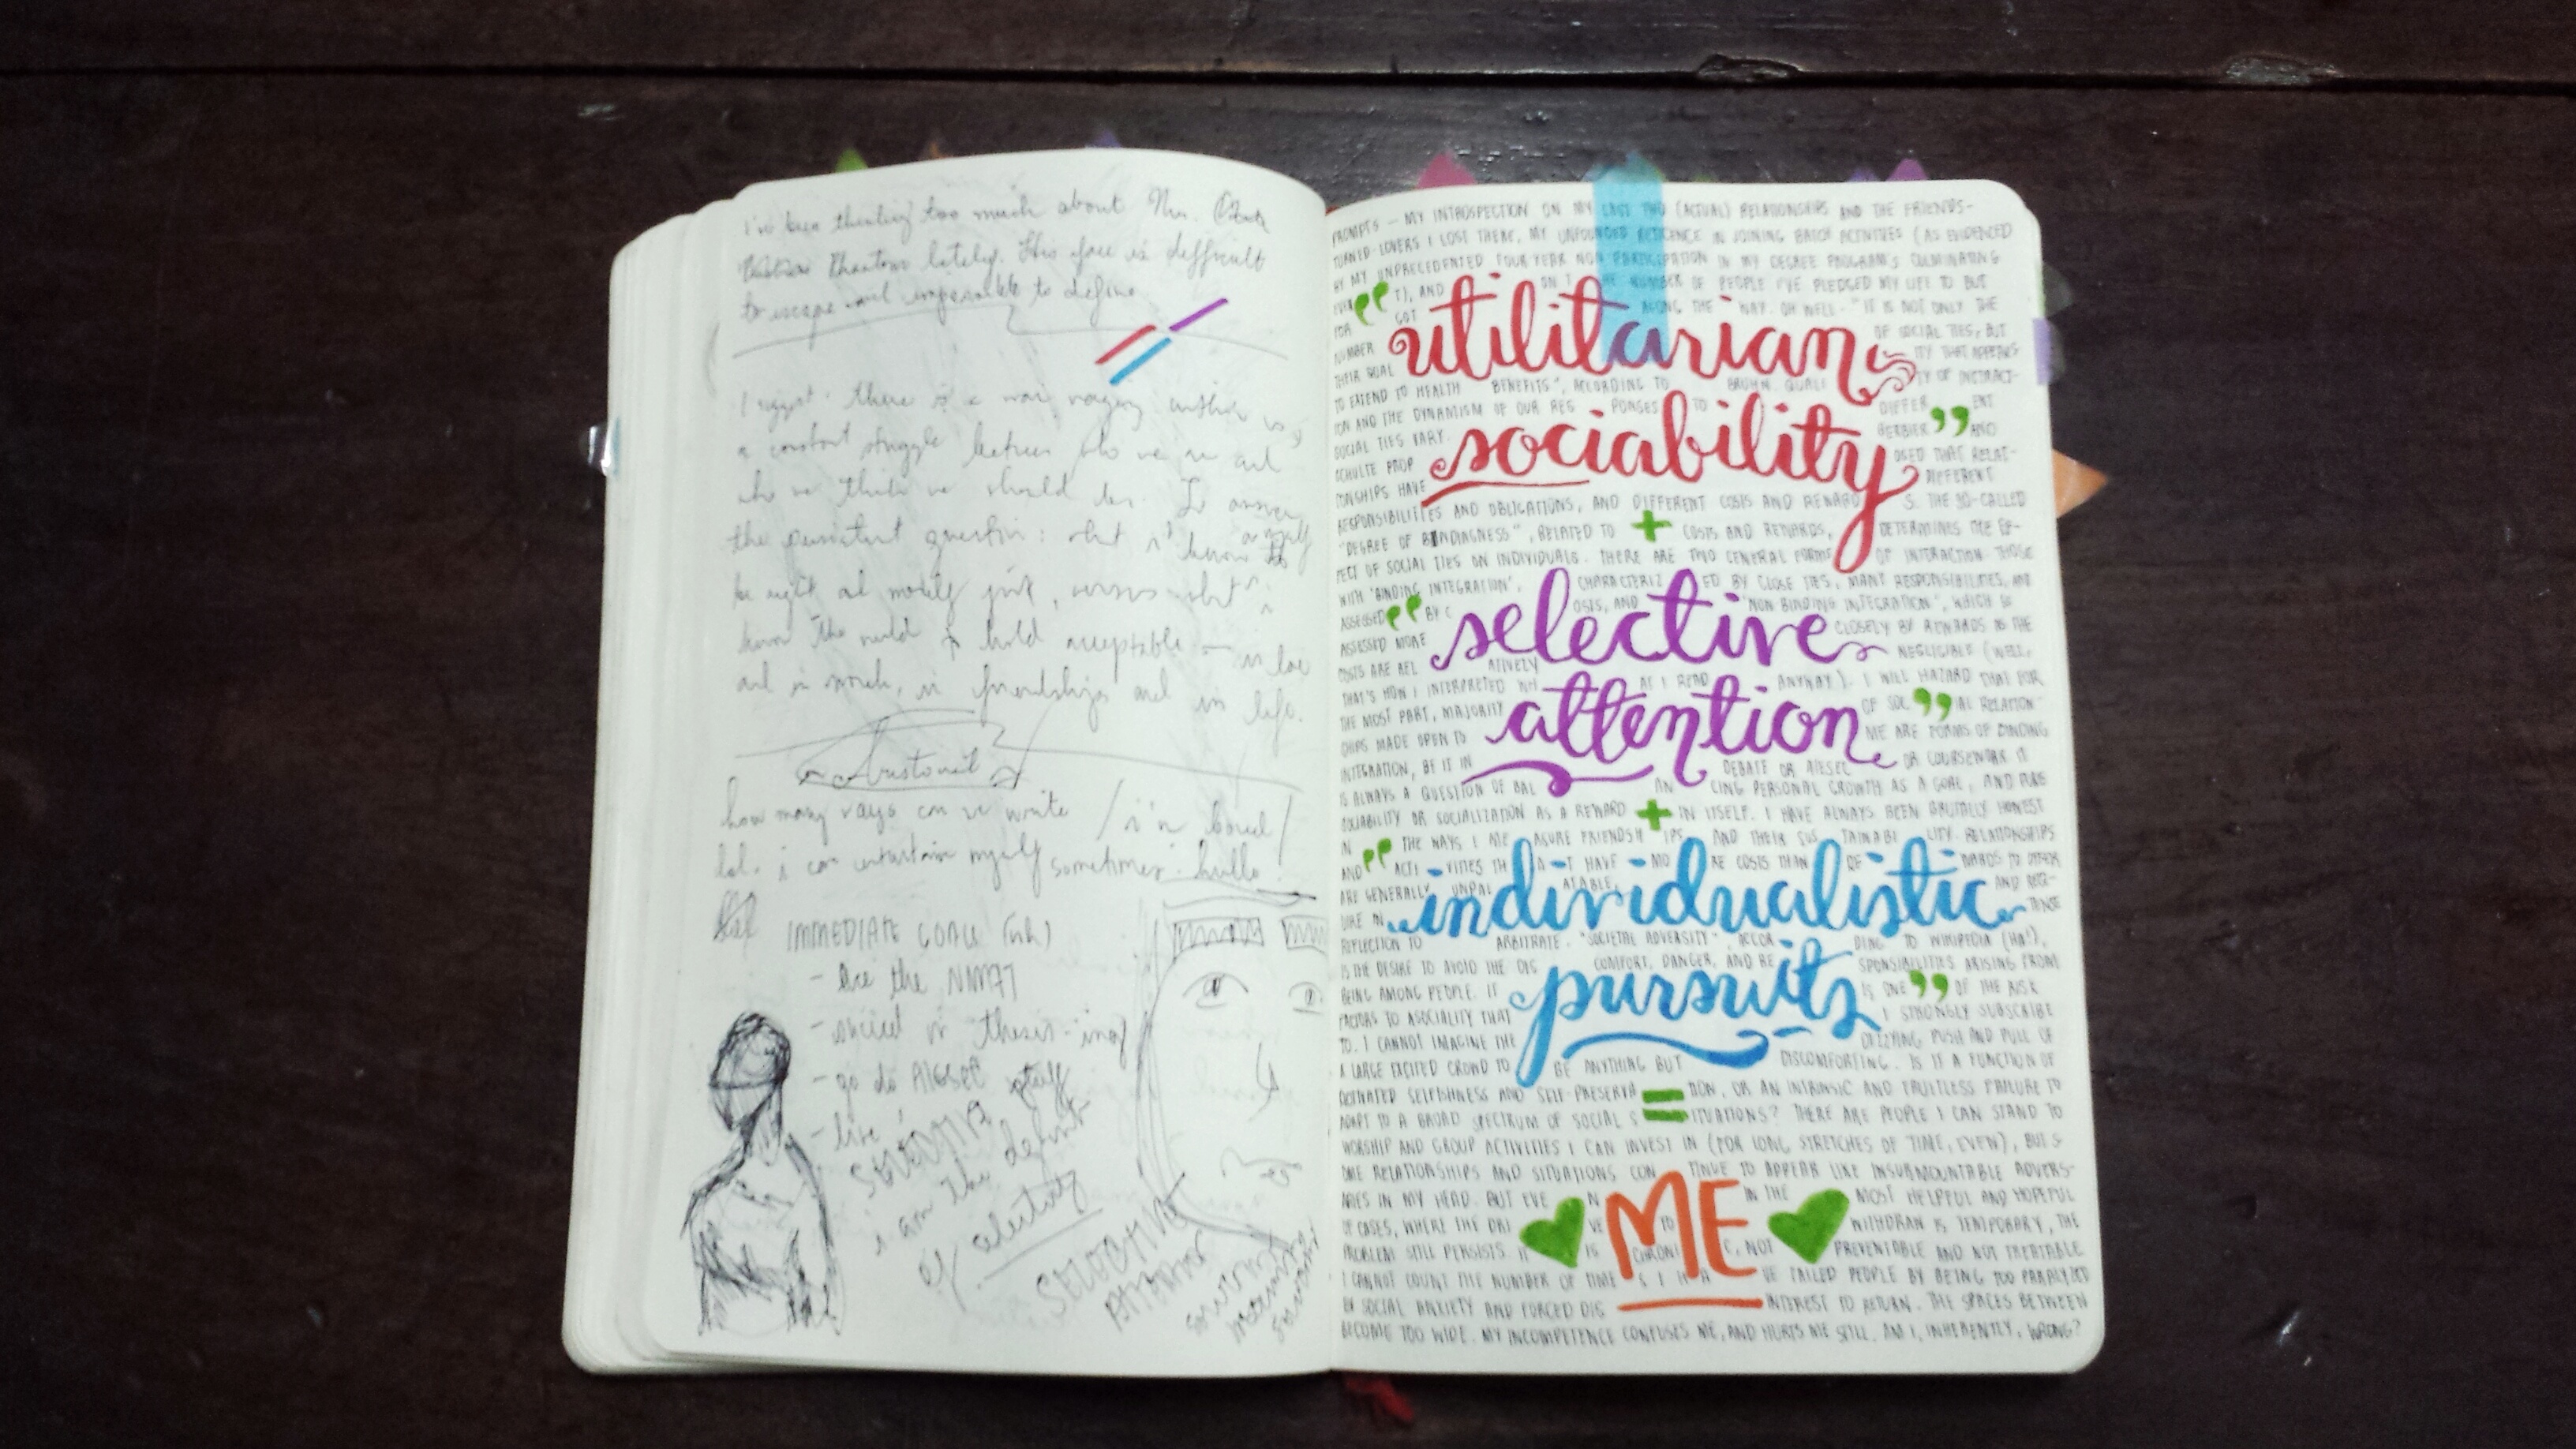 i've been thinking too much about Mrs.
Phantom lately. His face is difficult
to escape and impossible to define
I suggest there is a war raging within us,
a constant struggle between who we are and
who we think we should be. To answer
the persistent question: what i know
to be right and morally just, versus what i
know the world to hold acceptable — in love
and in work, in friendships and in life.
how many ways can we write /i'm bored/
lol. i can entertain myself sometimes. hullo
IMMEDIATE GOALS
- Ace the NMAT
- succeed in thesis-ing
- go do AIESEC stuff
- live
SELECTIVE
i am the
of selectivity
SELECTIVE
ATTENTION
PROMPTS — MY INTROSPECTION ON MY LAST TWO (ACTUAL) RELATIONSHIPS AND THE FRIENDS-
TURNED-LOVERS I LOST THERE, MY UNFOUNDED RETICENCE IN JOINING BATCH ACTIVITIES (AS EVIDENCED
BY MY UNPRECEDENTED FOUR YEAR NON PARTICIPATION IN MY DEGREE PROGRAM'S CULMINATING
T), AND ON T HE NUMBER OF PEOPLE I'VE PLEDGED MY LIFE TO BUT
FOR GOT ALONG THE WAY. OH WELL. "IT IS NOT ONLY THE
“ utilitarian
NUMBER OF SOCIAL TIES, BUT
THEIR QUAL ITY THAT APPEARS
TO EXTEND TO HEALTH BENEFITS", ACCORDING TO BRUHN. QUALI TY OF INTERACT-
ION AND THE DYNAMISM OF OUR RES PONSES TO DIFFER ENT
SOCIAL TIES VARY. AND
sociability ”
SCHULTE PROP OSED THAT RELAT-
IONSHIPS HAVE DIFFERENT
RESPONSIBILITIES AND OBLIGATIONS, AND DIFFERENT COSTS AND REWARD S. THE SO-CALLED
"DEGREE OF BINDINGNESS", RELATED TO + COSTS AND REWARDS, DETERMINES THE EF-
FECT OF SOCIAL TIES ON INDIVIDUALS. THERE ARE TWO GENERAL FORMS OF INTERACTION: THOSE
WITH "BINDING INTEGRATION", CHARACTERIZ ED BY CLOSE TIES, MANY RESPONSIBILITIES, AND
ASSESSED BY C OSTS, AND "NON BINDING INTEGRATION", WHICH IS
“ selective
ASSESSED MORE CLOSELY BY REWARDS AS THE
COSTS ARE REL ATIVELY NEGLIGIBLE (WELL,
THAT'S HOW I INTERPRETED WH AT I READ ANYWAY). I WILL HAZARD THAT FOR
THE MOST PART, MAJORITY OF SOC IAL RELATION
attention ”
SHIPS MADE OPEN TO ME ARE FORMS OF BINDING
INTEGRATION, BE IT IN DEBATE OR AIESEC OR COURSEWORK. IT
IS ALWAYS A QUESTION OF BAL AN CING PERSONAL GROWTH AS A GOAL, AND PURE
SOCIABILITY OR SOCIALIZATION AS A REWARD + IN ITSELF. I HAVE ALWAYS BEEN BRUTALLY HONEST
IN THE WAYS I ME ASURE FRIENDSH IPS AND THEIR SUS TAINABI LITY. RELATIONSHIPS
AND ACTI VITIES TH A T HAVE MO RE COSTS THAN RE WARDS TO OFFER
ARE GENERALLY UNPAL ATABLE, AND REQ-
“ individualistic
UIRE IN TENSE
REFLECTION TO ARBITRATE. "SOCIETAL ADVERSITY", ACCOR DING TO WIKIPEDIA (HA!),
IS THE DESIRE TO AVOID THE DIS COMFORT, DANGER, AND RE SPONSIBILITIES ARISING FROM
BEING AMONG PEOPLE. IT IS ONE OF THE RISK
pursuits ”
FACTORS TO ASOCIALITY THAT I STRONGLY SUBSCRIBE
TO. I CANNOT IMAGINE THE DIZZYING PUSH AND PULL OF
A LARGE EXCITED CROWD TO BE ANYTHING BUT DISCOMFORTING. IS IT A FUNCTION OF
SELFISHNESS AND SELF-PRESERVA = TION, OR AN INTRINSIC AND FRUITLESS FAILURE TO
ADAPT TO A BROAD SPECTRUM OF SOCIAL S ITUATIONS? THERE ARE PEOPLE I CAN STAND TO
WORSHIP AND GROUP ACTIVITIES I CAN INVEST IN (FOR LONG STRETCHES OF TIME, EVEN), BUT S-
OME RELATIONSHIPS AND SITUATIONS CON TINUE TO APPEAR LIKE INSURMOUNTABLE ADVERS-
ARIES IN MY HEAD. BUT EVE N IN THE MOST HELPFUL AND HOPEFUL
ME
OF CASES, WHERE THE DRI VE TO WITHDRAW IS TEMPORARY, THE
PROBLEM STILL PERSISTS. IT IS CHRONI C, NOT PREVENTABLE AND NOT TREATABLE
I CANNOT COUNT THE NUMBER OF TIME S I HA VE FAILED PEOPLE BY BEING TOO PARALYZED
BY SOCIAL ANXIETY AND FORCED DIS INTEREST TO RETURN. THE SPACES BETWEEN
BECOME TOO WIDE. MY INCOMPETENCE CONFUSES ME, AND HURTS ME STILL. AM I, INHERENTLY, WRONG?